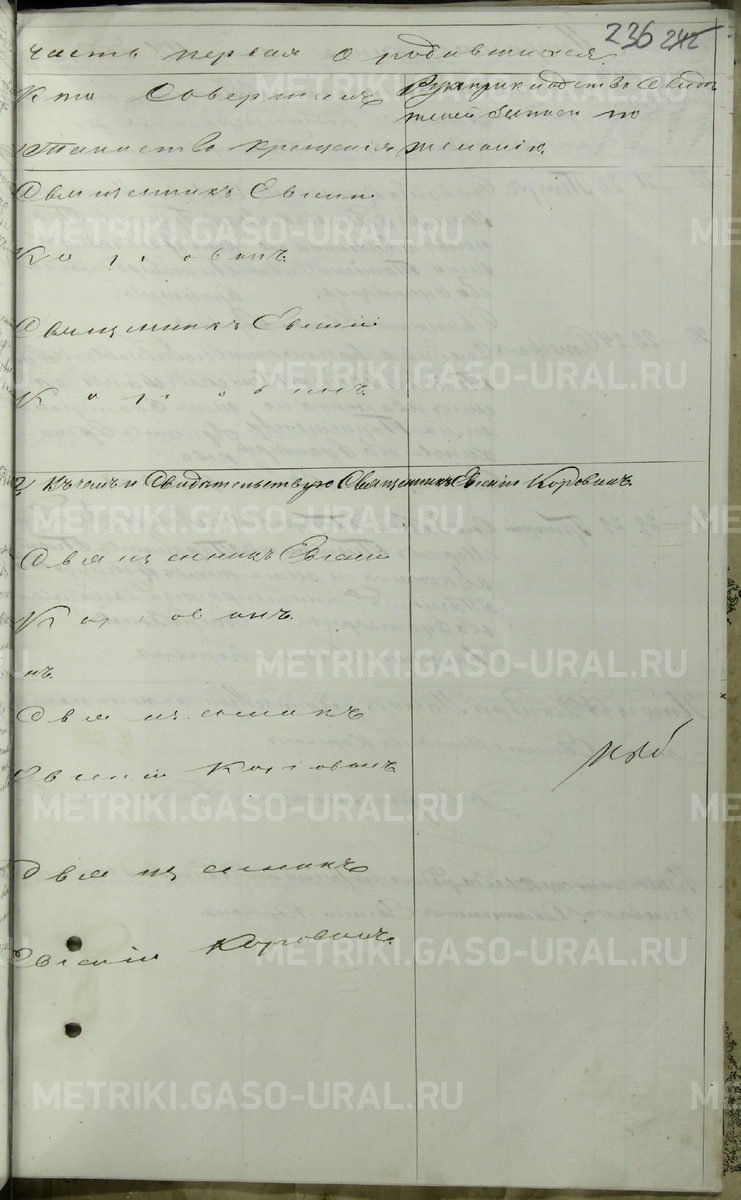 236 242
Часть первая о родившихся
Кто Совершалъ
Таинство крещенія
Рукоприкладство Свидѣ
телей записи по
желанію.
Священникъ Евгеній
Коровинъ.
Священникъ Евгеній
Коровинъ.
Къ чемъ и Свидѣтельствую Священникъ Евгеній Коровинъ.
Священникъ Евгеній
Коровинъ.
нъ.
Священникъ
Евгеній Коровинъ
Священникъ
Евгеній Коровинъ.
METRIKI.GASO-URAL.RU